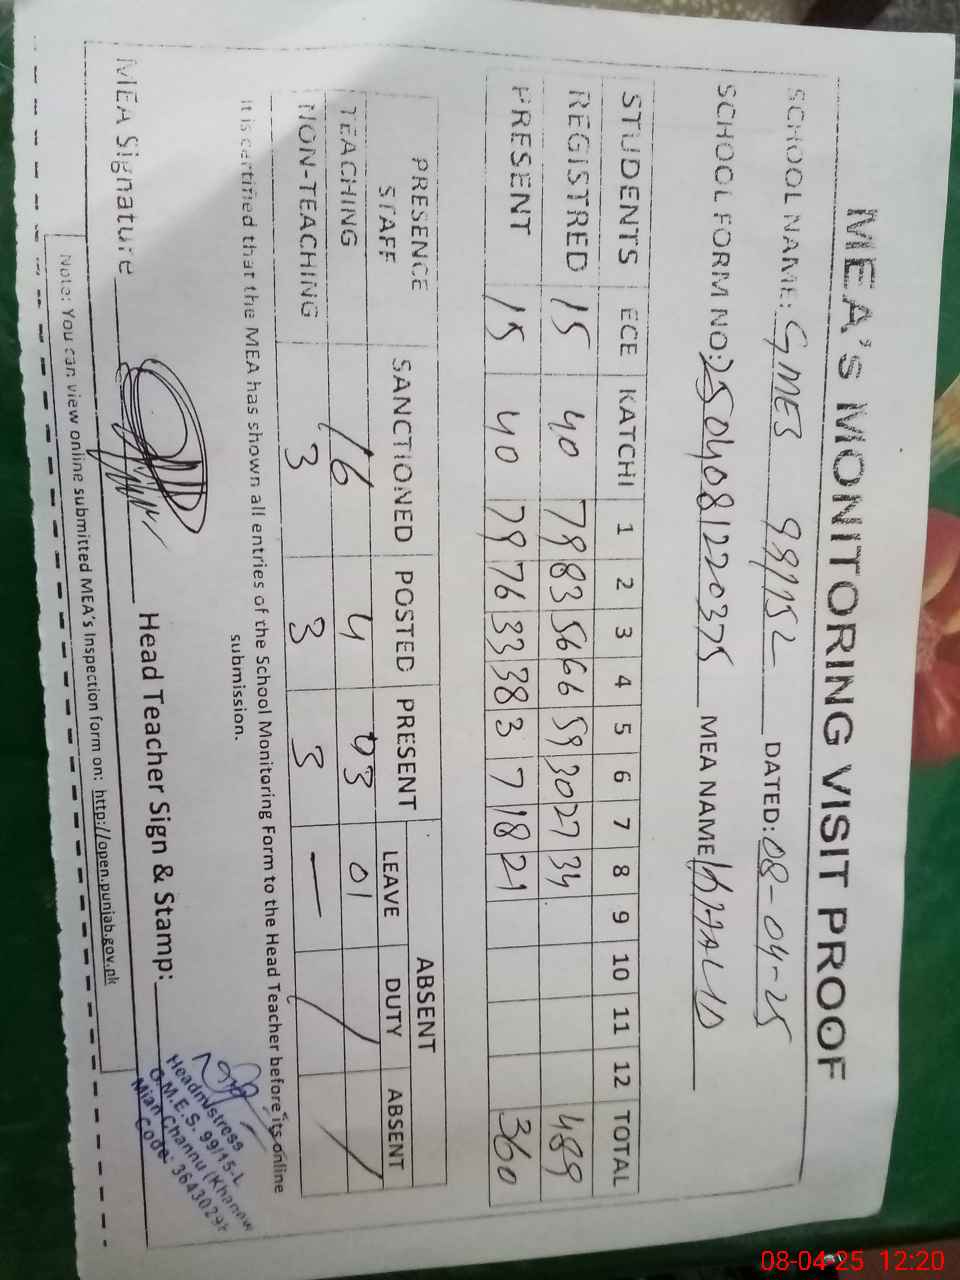 MEA'S MONITORING VISIT PROOF
SCHOOL NAME: GMES 99/15L DATED: 08-04-25
SCHOOL FORM NO: 2504081220375 MEA NAME KHALID
STUDENTS ECE KATCHI 1 2 3 4 5 6 7 8 9 10 11 12 TOTAL
REGISTRED 15 40 79 83 56 66 59 30 27 34 489
PRESENT 15 40 79 76 33 38 3 7 18 21 360
PRESENCE STAFF SANCTIONED POSTED PRESENT ABSENT
LEAVE DUTY ABSENT
TEACHING 16 4 03 01 / /
NON-TEACHING 3 3 3 —
It is certified that the MEA has shown all entries of the School Monitoring Form to the Head Teacher before its online
submission.
MEA Signature Head Teacher Sign & Stamp:
Headmistress
G.M.E.S. 99/15-L
Mian Channu (Khanew
Code: 3643029
Note: You can view online submitted MEA's Inspection form on: http://open.punjab.gov.pk
08-04-25 12:20